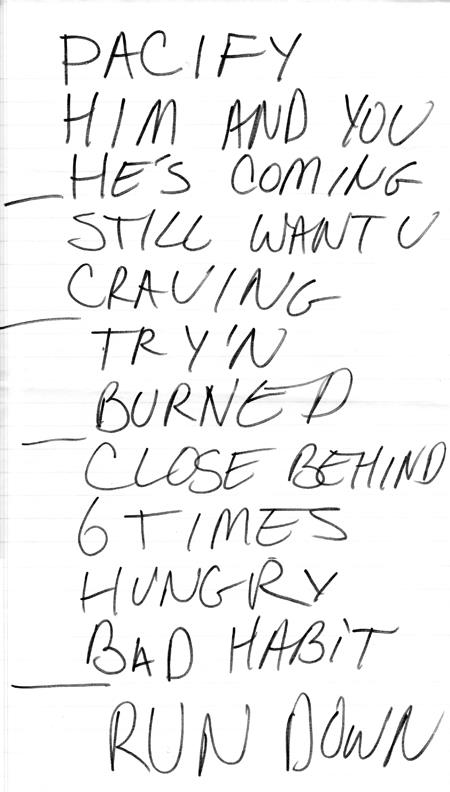 PACIFY
HIM AND YOU
HE'S COMING
STILL WANT U
CRAVING
TRY'N
BURNED
CLOSE BEHIND
6 TIMES
HUNGRY
BAD HABIT
RUN DOWN